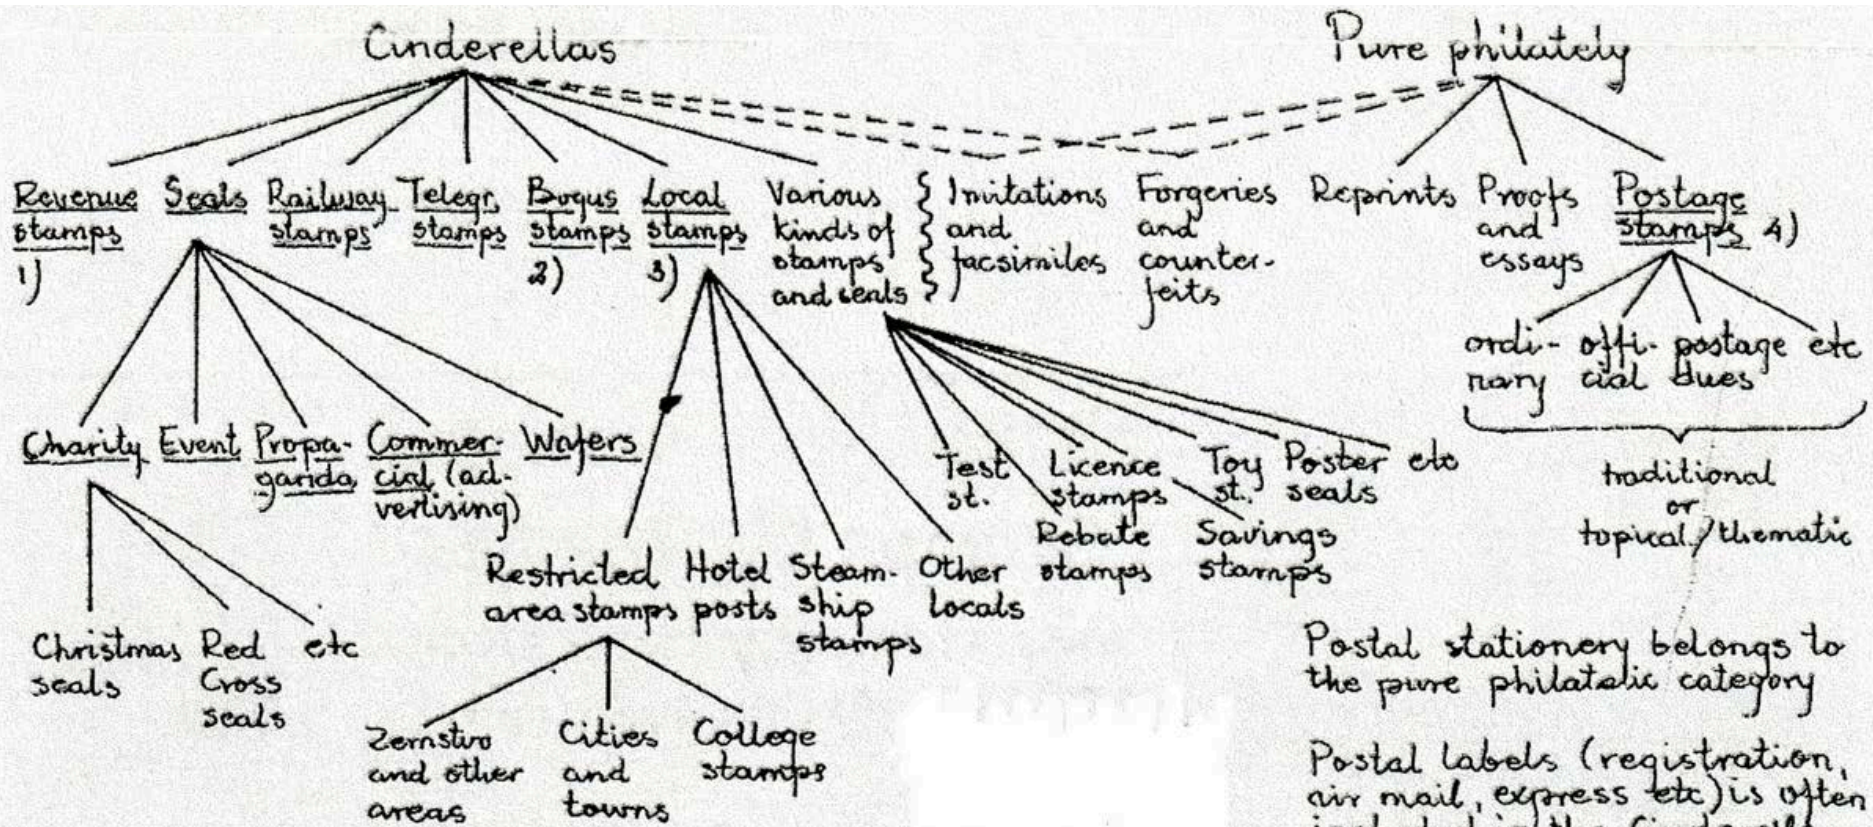 Cinderellas
Pure philately
Revenue
stamps
1)
Seals
Railway
stamps
Telegr.
stamps
Bogus
stamps
2)
Local
stamps
3)
Various
kinds of
stamps
and seals
Imitations
and
facsimiles
Forgeries
and
counter-
feits
Reprints
Proofs
and
essays
Postage
stamps 4)
ordi-
nary
offi-
cial
postage
dues
etc
traditional
or
topical/thematic
Charity
Event
Propa-
ganda
Commer-
cial (ad-
vertising)
Wafers
Test
st.
Licence
stamps
Toy
st.
Poster
seals
etc
Rebate
stamps
Savings
stamps
Restricted
area stamps
Hotel
posts
Steam-
ship
stamps
Other
locals
Christmas
seals
Red
Cross
seals
etc
Zemstvo
and other
areas
Cities
and
towns
College
stamps
Postal stationery belongs to
the pure philatelic category
Postal labels (registration,
air mail, express etc) is often